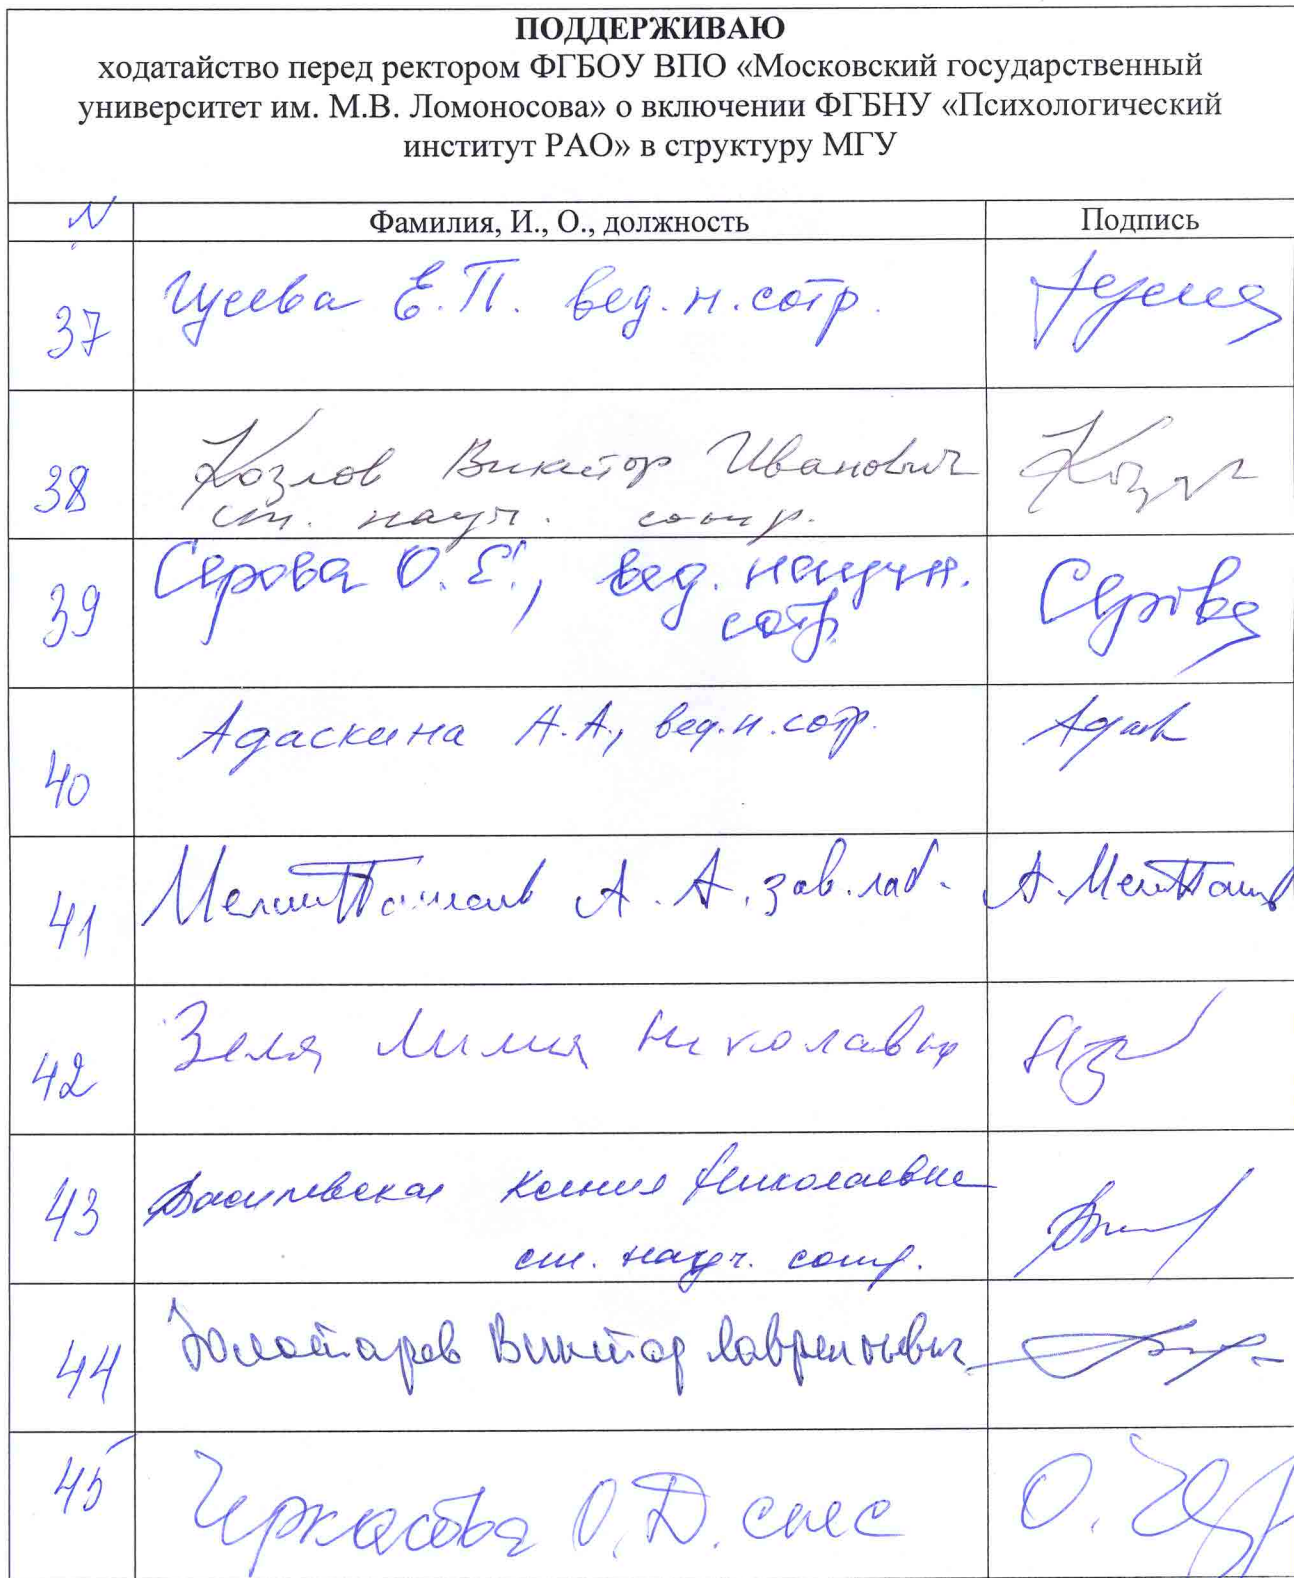 ПОДДЕРЖИВАЮ
ходатайство перед ректором ФГБОУ ВПО «Московский государственный
университет им. М.В. Ломоносова» о включении ФГБНУ «Психологический
институт РАО» в структуру МГУ
N Фамилия, И., О., должность Подпись
37 Гусева Е.П. вед. н. сотр.
38 Козлов Виктор Иванович
ст. науч. сотр.
39 Серова О.Е., вед. научн. Серова
сотр.
40 Адаскина А.А, вед. н. сотр.
41 Мелик-Пашаев А. А. зав. лаб.
42 Зеля Лилия Николавна
43 Василевская Ксения Николаевна
ст. науч. сотр.
44 Золотарев Виктор Лаврентьевич
45 Черкасова О.Д.